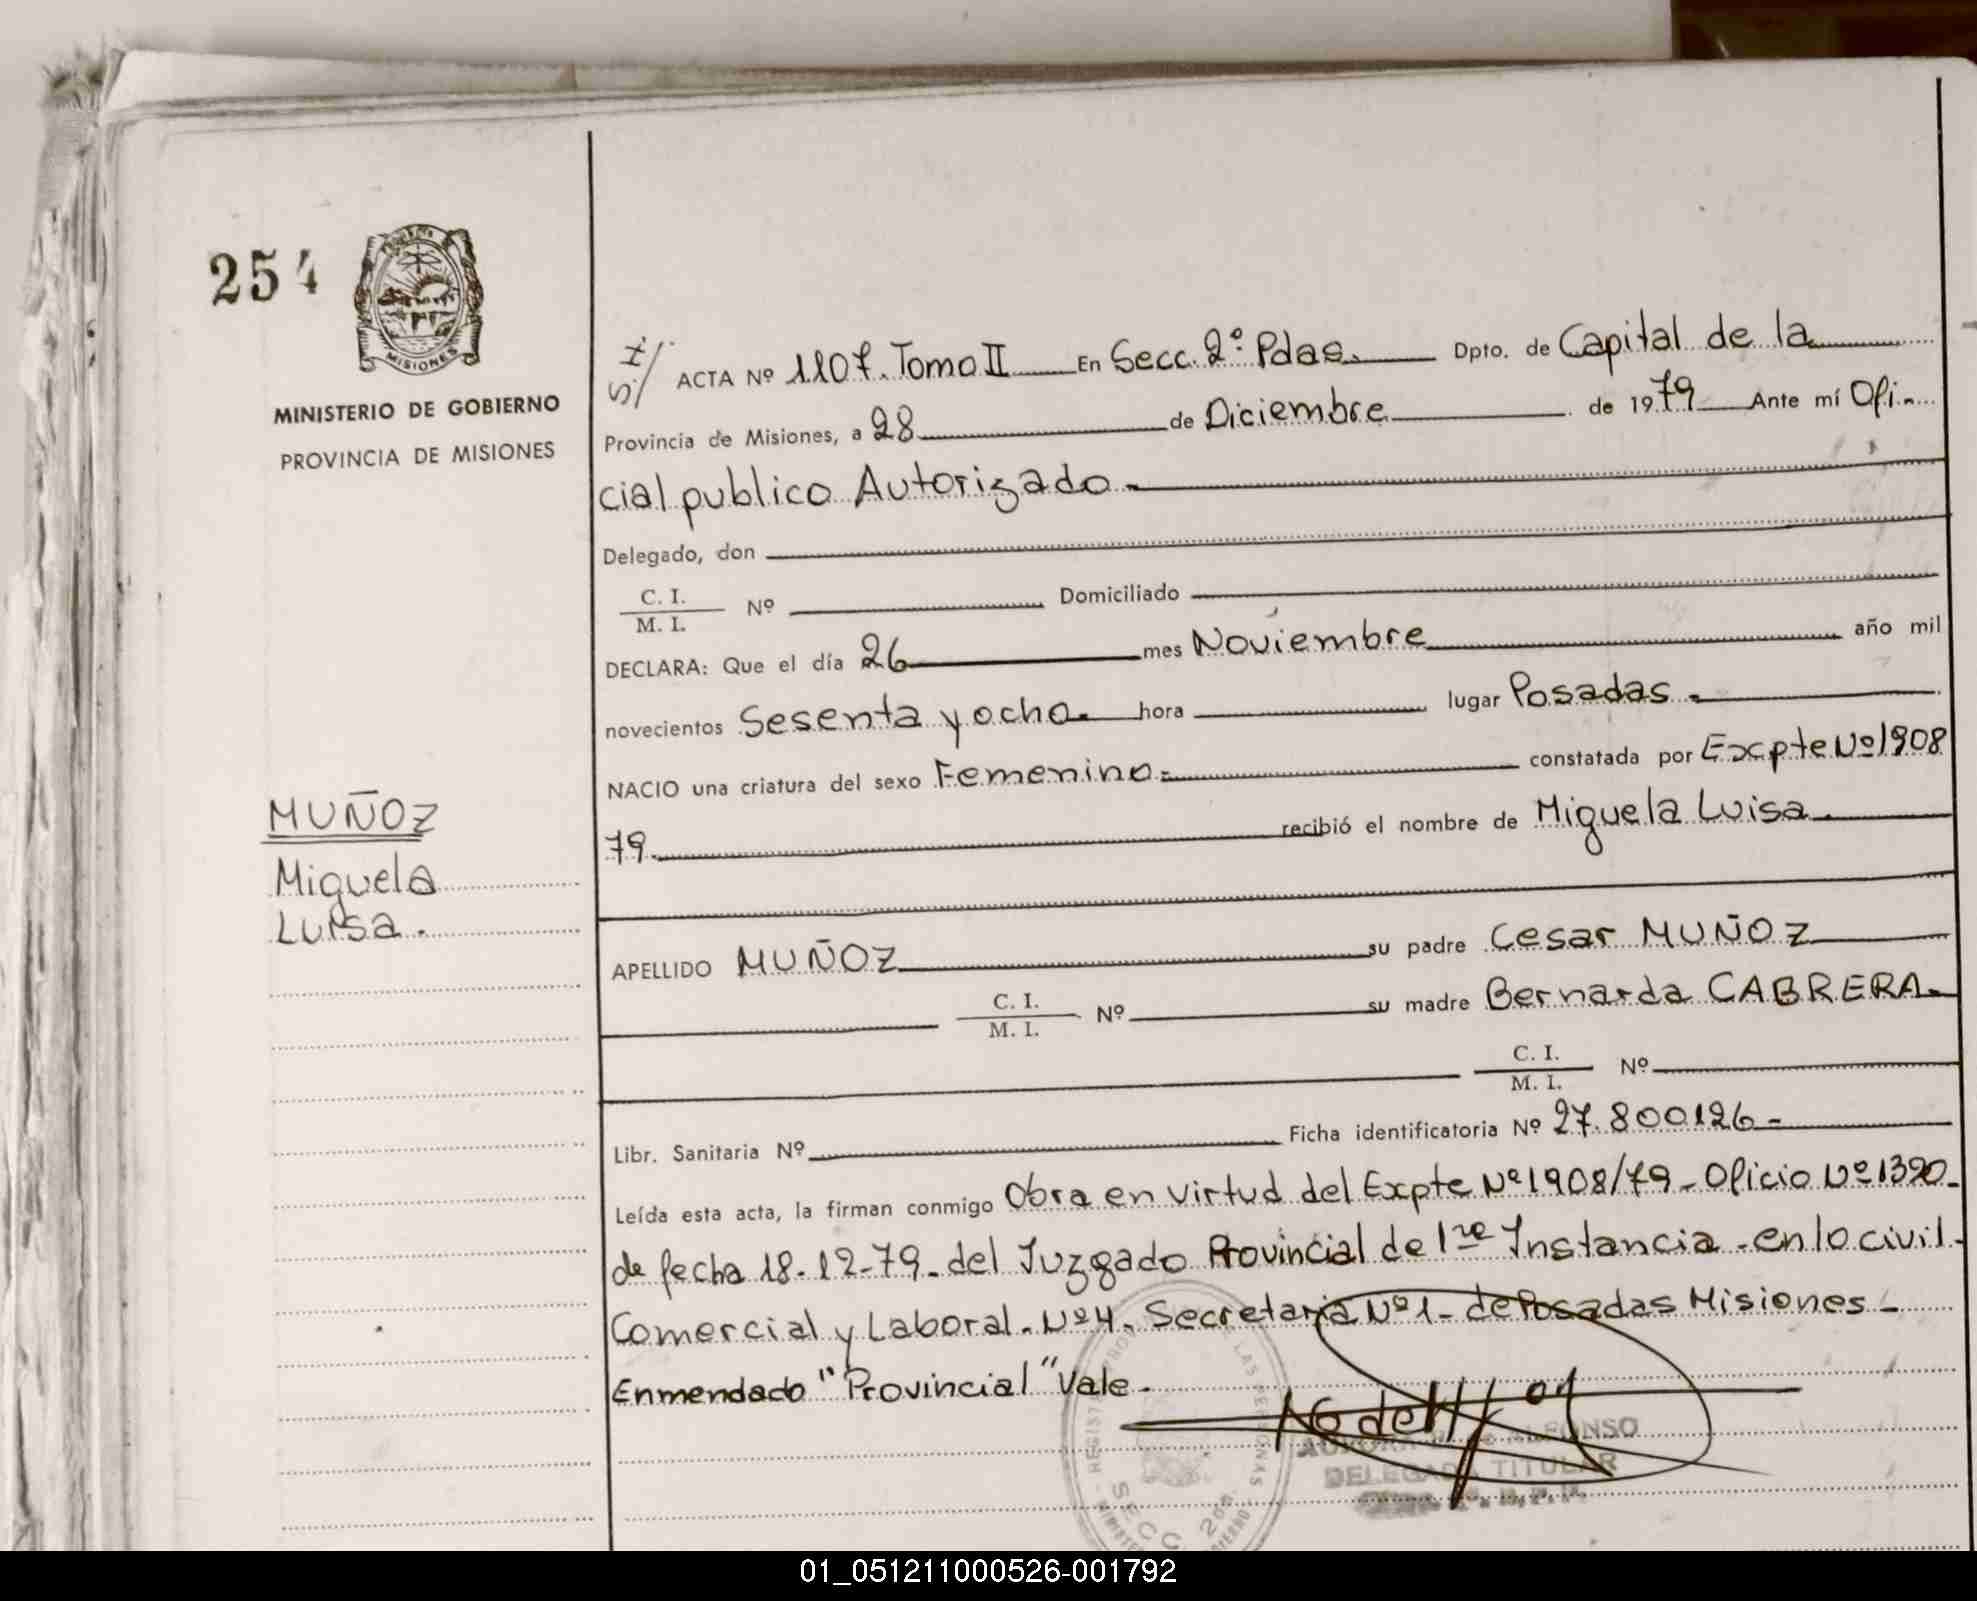 254
MISIONES
MINISTERIO DE GOBIERNO
PROVINCIA DE MISIONES
MUÑOZ
Miguela
Luisa.
S/I/ ACTA Nº 1107. Tomo II En Secc. 2º Pdas. Dpto. de Capital de la
Provincia de Misiones, a 28 de Diciembre de 1979 Ante mí Ofi-
cial publico Autorizado.
Delegado, don
C. I.
M. I. Nº Domiciliado
DECLARA: Que el día 26 mes Noviembre año mil
novecientos Sesenta y ocho. hora lugar Posadas.
NACIO una criatura del sexo Femenino.- constatada por Excpte Nº 1908
79. recibió el nombre de Miguela Luisa.
APELLIDO MUÑOZ su padre Cesar MUÑOZ
C. I.
M. I. Nº su madre Bernarda CABRERA.
C. I.
M. I. Nº
Libr. Sanitaria Nº Ficha identificatoria Nº 27.800126-
Leída esta acta, la firman conmigo Obra en virtud del Excpte Nº 1908/79- Oficio Nº 1390-
de fecha 18-12-79- del Juzgado Provincial de 1ra Instancia - en lo civil-
Comercial y Laboral. Nº 4. Secretaria Nº 1- de Posadas Misiones-
Enmendado "Provincial" Vale.
ALFONSO
DELEGADA TITULAR
SECC 2da.
01_051211000526-001792